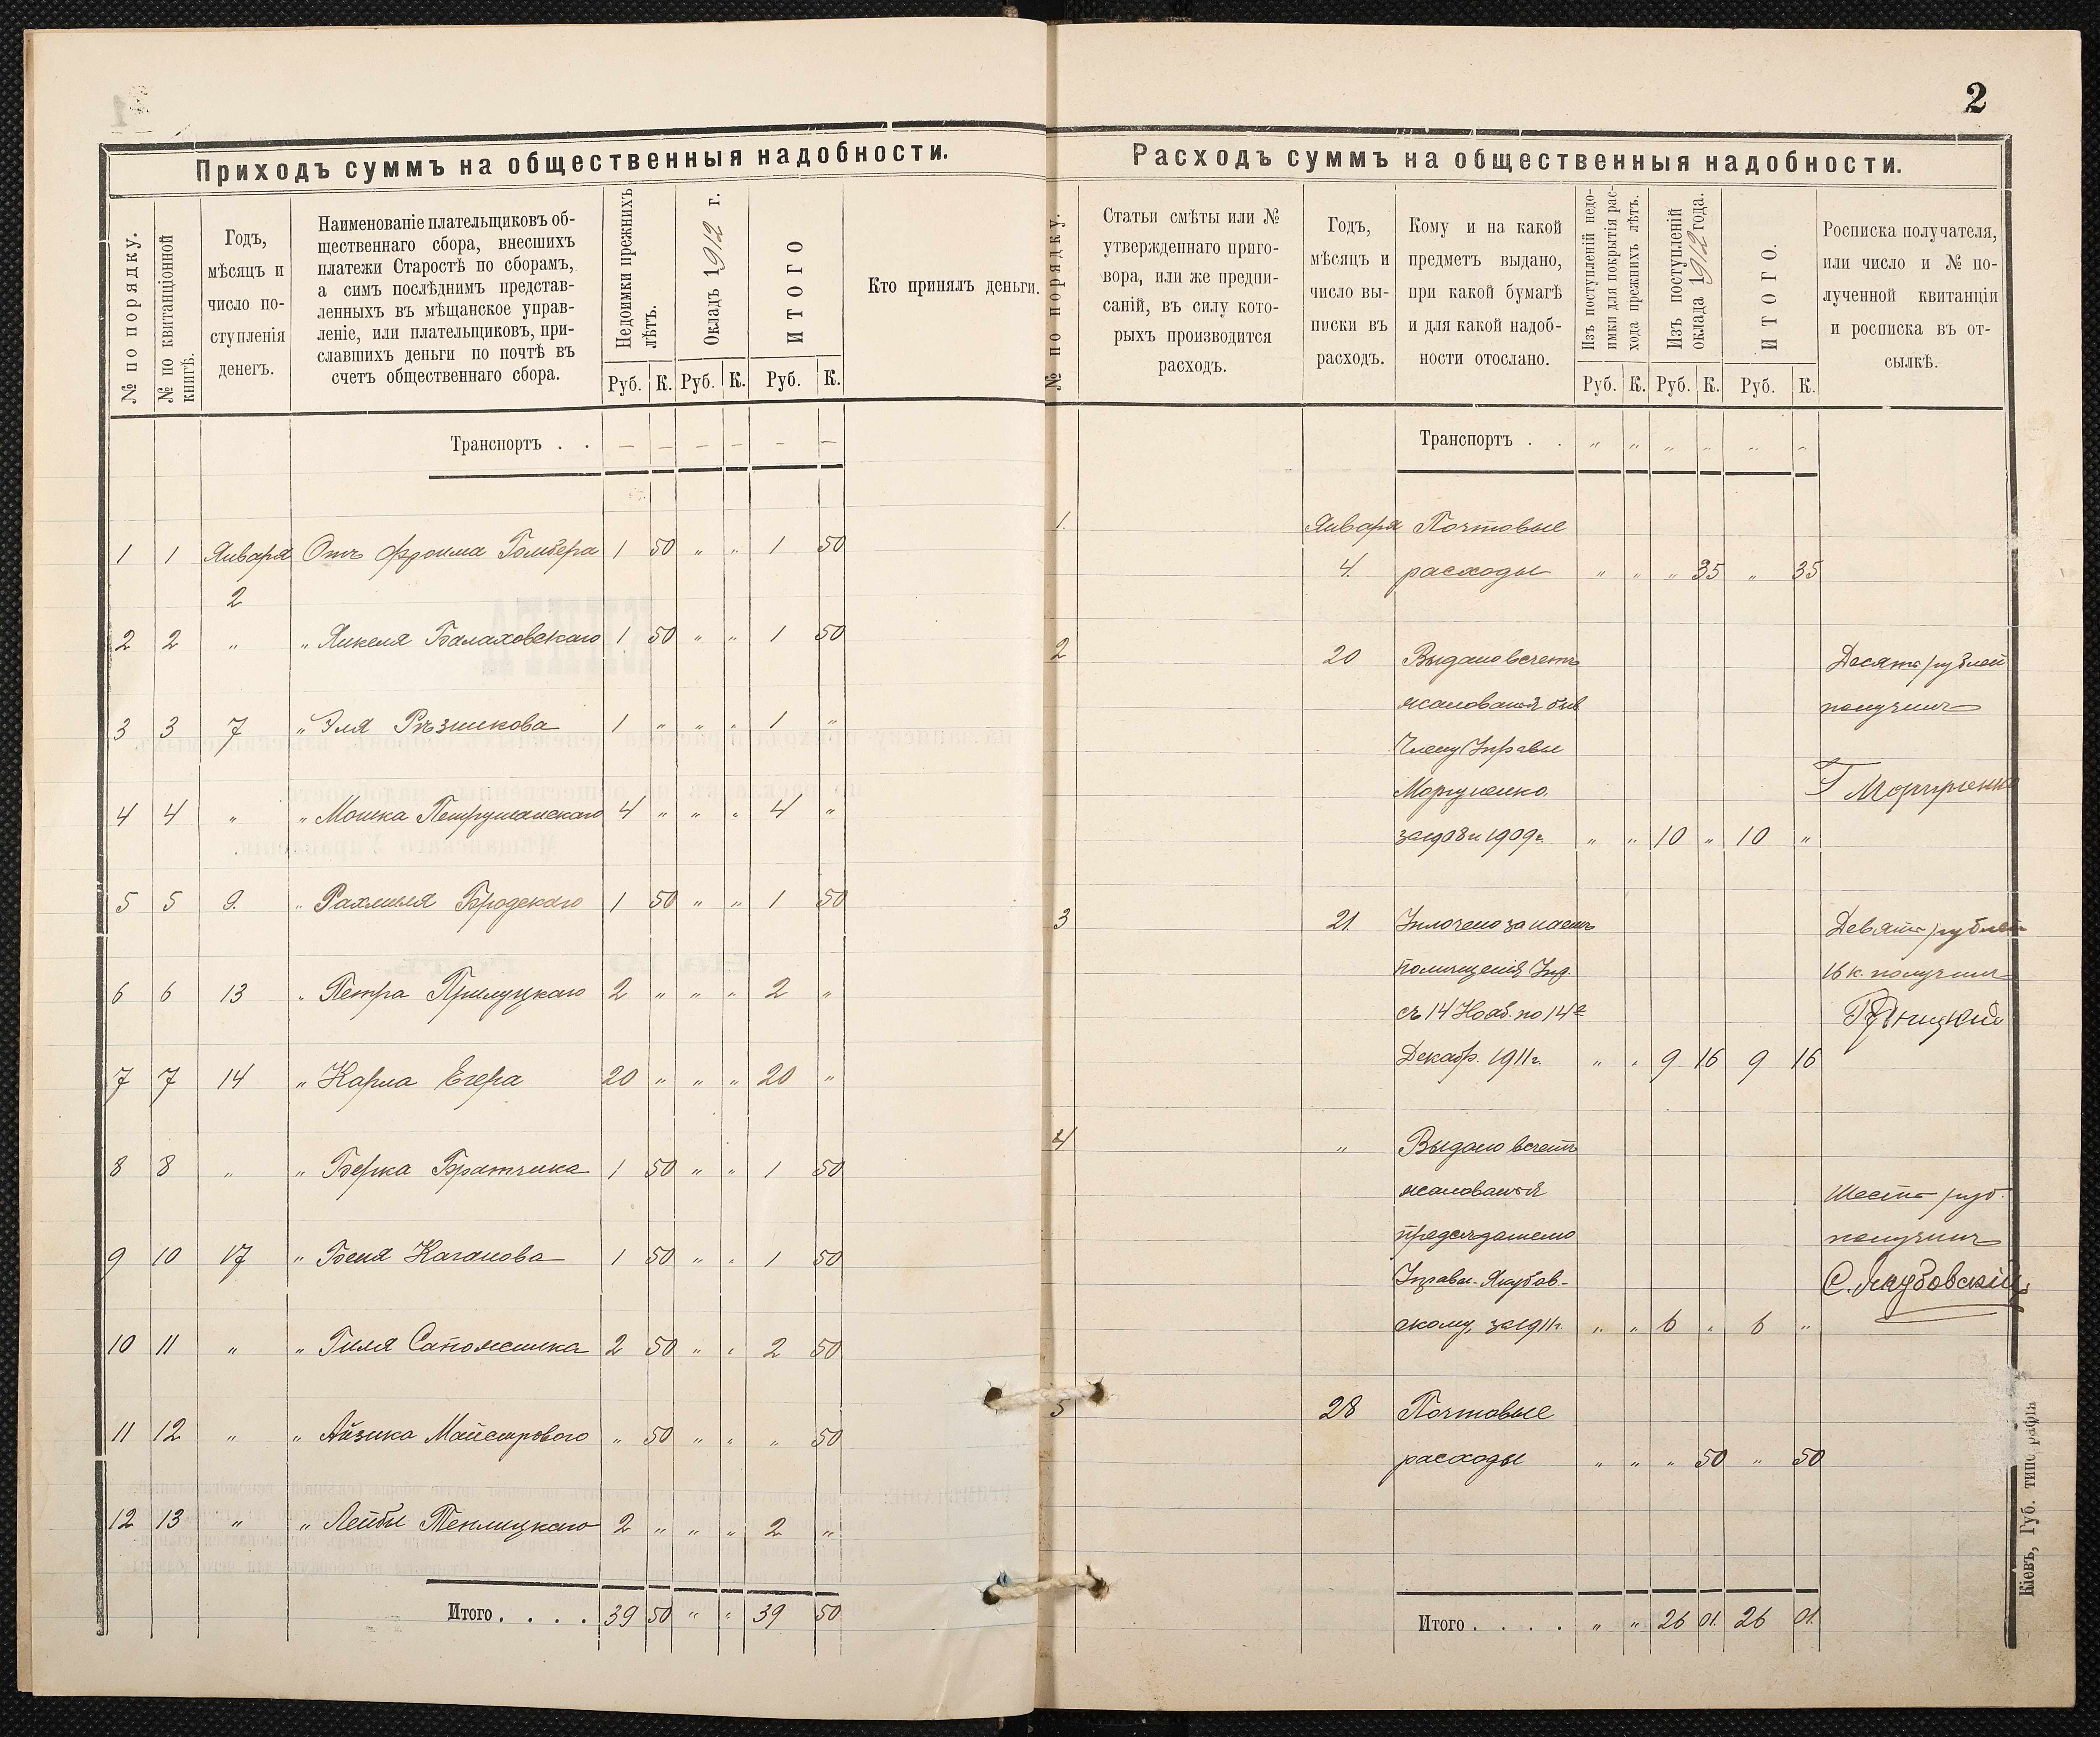 2
Приходъ суммъ на общественныя надобности.
№ по порядку.
№ по квитанціонной
книгѣ.
Годъ,
мѣсяцъ и
число по-
ступленія
денегъ.
Наименованіе плательщиковъ об-
щественнаго сбора, внесшихъ
платежи Старостѣ по сборамъ,
а симъ послѣднимъ представ-
ленныхъ въ мѣщанское управ-
леніе, или плательщиковъ, при-
славшихъ деньги по почтѣ въ
счетъ общественнаго сбора.
Недоимки прежнихъ
лѣтъ.
Окладъ 1912 г.
ИТОГО
Руб. К. Руб. К. Руб. К.
Кто принялъ деньги.
Транспортъ . . — — — — — —
1 1 Января Отъ Фроима Гомбера 1 50 " " 1 50
2
2 2 " " Янкеля Балаховскаго 1 50 " " 1 50
3 3 7 " Эля Рѣзникова 1 " " " 1 "
4 4 " " Мошка Петрушанскаго 4 " " " 4 "
5 5 9. " Рахмиля Бродскаго 1 50 " " 1 50
6 6 13 " Петра Прилуцкаго 2 " " " 2 "
7 7 14 " Карла Егера 20 " " " 20 "
8 8 " " Берка Братчика 1 50 " " 1 50
9 10 17 " Беня Каганова 1 50 " " 1 50
10 11 " " Гиля Сапожника 2 50 " " 2 50
11 12 " " Айзика Майстрового " 50 " " " 50
12 13 " " Лейбы Теплицкаго 2 " " " 2 "
Итого . . . . 39 50 " " 39 50
Расходъ суммъ на общественныя надобности.
№ по порядку.
Статьи смѣты или №
утвержденнаго приго-
вора, или же предпи-
саній, въ силу кото-
рыхъ производится
расходъ.
Годъ,
мѣсяцъ и
число вы-
писки въ
расходъ.
Кому и на какой
предметъ выдано,
при какой бумагѣ
и для какой надоб-
ности отослано.
Изъ поступленій недо-
имки для покрытія рас-
хода прежнихъ лѣтъ.
Изъ поступленій
оклада 1912 года.
ИТОГО.
Руб. К. Руб. К. Руб. К.
Росписка получателя,
или число и № по-
лученной квитанціи
и росписка въ от-
сылкѣ.
Транспортъ . . " " " " " "
1. Января Почтовые
4. расходы " " " 35 " 35
2 20 Выдано въ счетъ Десять рублей
жалованья быв получилъ
Члену Управы
Моргуненко.
за 1908 и 1909 г. " " 10 " 10 "
3 21. Уплочено за наемъ Девять рублей
помѣщенія Упр. 16 к. получилъ
съ 14 Нояб. по 14е
Декабр. 1911 г. " " 9 16 9 16
4 " Выдано въ счетъ
жалованья Шесть руб.
предсѣдателю получилъ
Управы Якубов- С. Якубовскій
скому, за 1911 г. " " 6 " 6 "
5 28 Почтовые
расходы " " " 50 " 50
Итого . . . . " " 26 01. 26 01.
Кіевъ, Губ. типографія